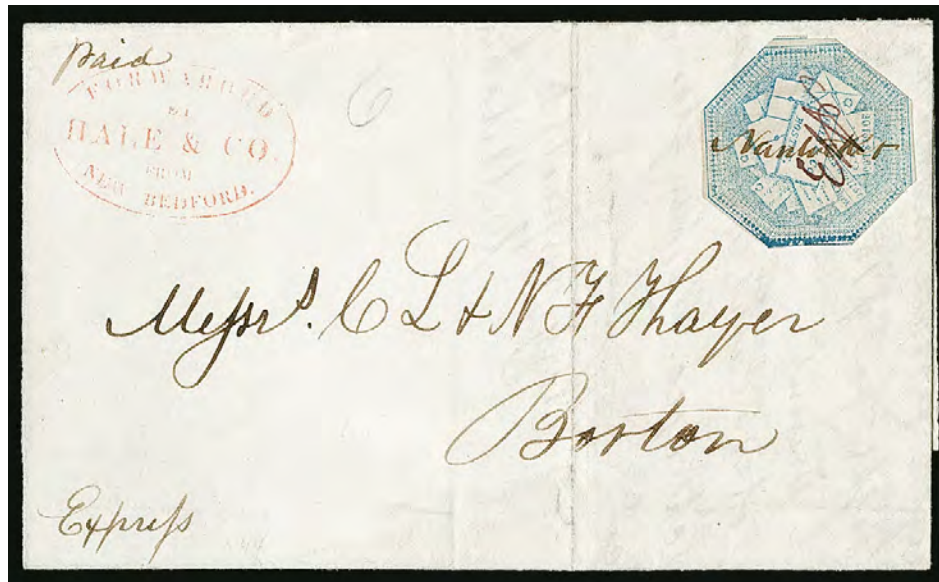 Paid
FORWARDED
BY
HALE & CO.
FROM
NEW BEDFORD.
6
Nantucket
Messrs. C L & N F Thayer
Boston
Express